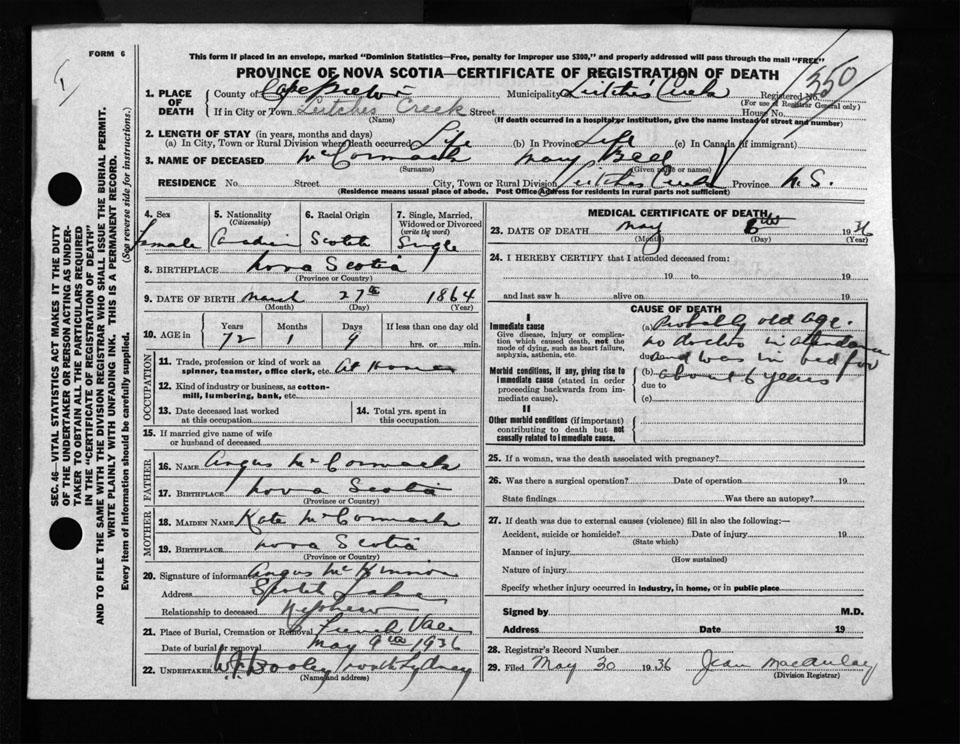 FORM 6
This form if placed in an envelope, marked "Dominion Statistics—Free, penalty for improper use $300," and properly addressed will pass through the mail "FREE"
PROVINCE OF NOVA SCOTIA—CERTIFICATE OF REGISTRATION OF DEATH
350
1. PLACE OF DEATH
County of Cape Breton Municipality Leitches Creek Registered No.
(For use of Registrar General only)
If in City or Town Leitches Creek Street House No.
(Name) (If death occurred in a hospital or institution, give the name instead of street and number)
2. LENGTH OF STAY (in years, months and days)
(a) In City, Town or Rural Division where death occurred Life (b) In Province Life (c) In Canada (if immigrant)
3. NAME OF DECEASED McCormack Mary Bell
(Surname) (Given name or names)
RESIDENCE No. Street City, Town or Rural Division Leitches Creek Province N.S.
(Residence means usual place of abode. Post Office Address for residents in rural parts not sufficient)
4. Sex Female
5. Nationality (Citizenship) Canadian
6. Racial Origin Scotch
7. Single, Married, Widowed or Divorced (write the word) Single
8. BIRTHPLACE Nova Scotia
(Province or Country)
9. DATE OF BIRTH March 27th 1864
(Month) (Day) (Year)
10. AGE in Years 72 Months 1 Days 9 If less than one day old hrs. or min.
OCCUPATION
11. Trade, profession or kind of work as spinner, teamster, office clerk, etc. At Home
12. Kind of industry or business, as cotton-mill, lumbering, bank, etc.
13. Date deceased last worked at this occupation
14. Total yrs. spent in this occupation
15. If married give name of wife or husband of deceased
FATHER
16. NAME Angus McCormack
17. BIRTHPLACE Nova Scotia
(Province or Country)
MOTHER
18. MAIDEN NAME Kate McCormack
19. BIRTHPLACE Nova Scotia
(Province or Country)
20. Signature of informant Angus McKinnon
Address Lake
Relationship to deceased Nephew
21. Place of Burial, Cremation or Removal French Vale
Date of burial or removal May 9th 1936
22. UNDERTAKER Dooley North Sydney
(Name and address)
MEDICAL CERTIFICATE OF DEATH
23. DATE OF DEATH May 6th 1936
(Month) (Day) (Year)
24. I HEREBY CERTIFY that I attended deceased from:
19 to 19
and last saw h alive on 19
CAUSE OF DEATH
I
Immediate cause
Give disease, injury or complication which caused death, not the mode of dying, such as heart failure, asphyxia, asthenia, etc.
Morbid conditions, if any, giving rise to immediate cause (stated in order proceeding backwards from immediate cause).
II
Other morbid conditions (if important) contributing to death but not causally related to immediate cause.
(a) Probably old age.
no doctor in attendance
due to and was in bed for
(b) about 6 years
due to
(c)
25. If a woman, was the death associated with pregnancy?
26. Was there a surgical operation? Date of operation 19
State findings Was there an autopsy?
27. If death was due to external causes (violence) fill in also the following:—
Accident, suicide or homicide? Date of injury 19
(State which)
Manner of injury
(How sustained)
Nature of injury
Specify whether injury occurred in industry, in home, or in public place
Signed by M.D.
Address Date 19
28. Registrar's Record Number
29. Filed May 30 1936 Jean MacAulay
(Division Registrar)
SEC. 46—VITAL STATISTICS ACT MAKES IT THE DUTY
OF THE UNDERTAKER OR PERSON ACTING AS UNDER-
TAKER TO OBTAIN ALL THE PARTICULARS REQUIRED
IN THE "CERTIFICATE OF REGISTRATION OF DEATH"
AND TO FILE THE SAME WITH THE DIVISION REGISTRAR WHO SHALL ISSUE THE BURIAL PERMIT.
WRITE PLAINLY WITH UNFADING INK. THIS IS A PERMANENT RECORD.
Every item of information should be carefully supplied. (See reverse side for instructions.)